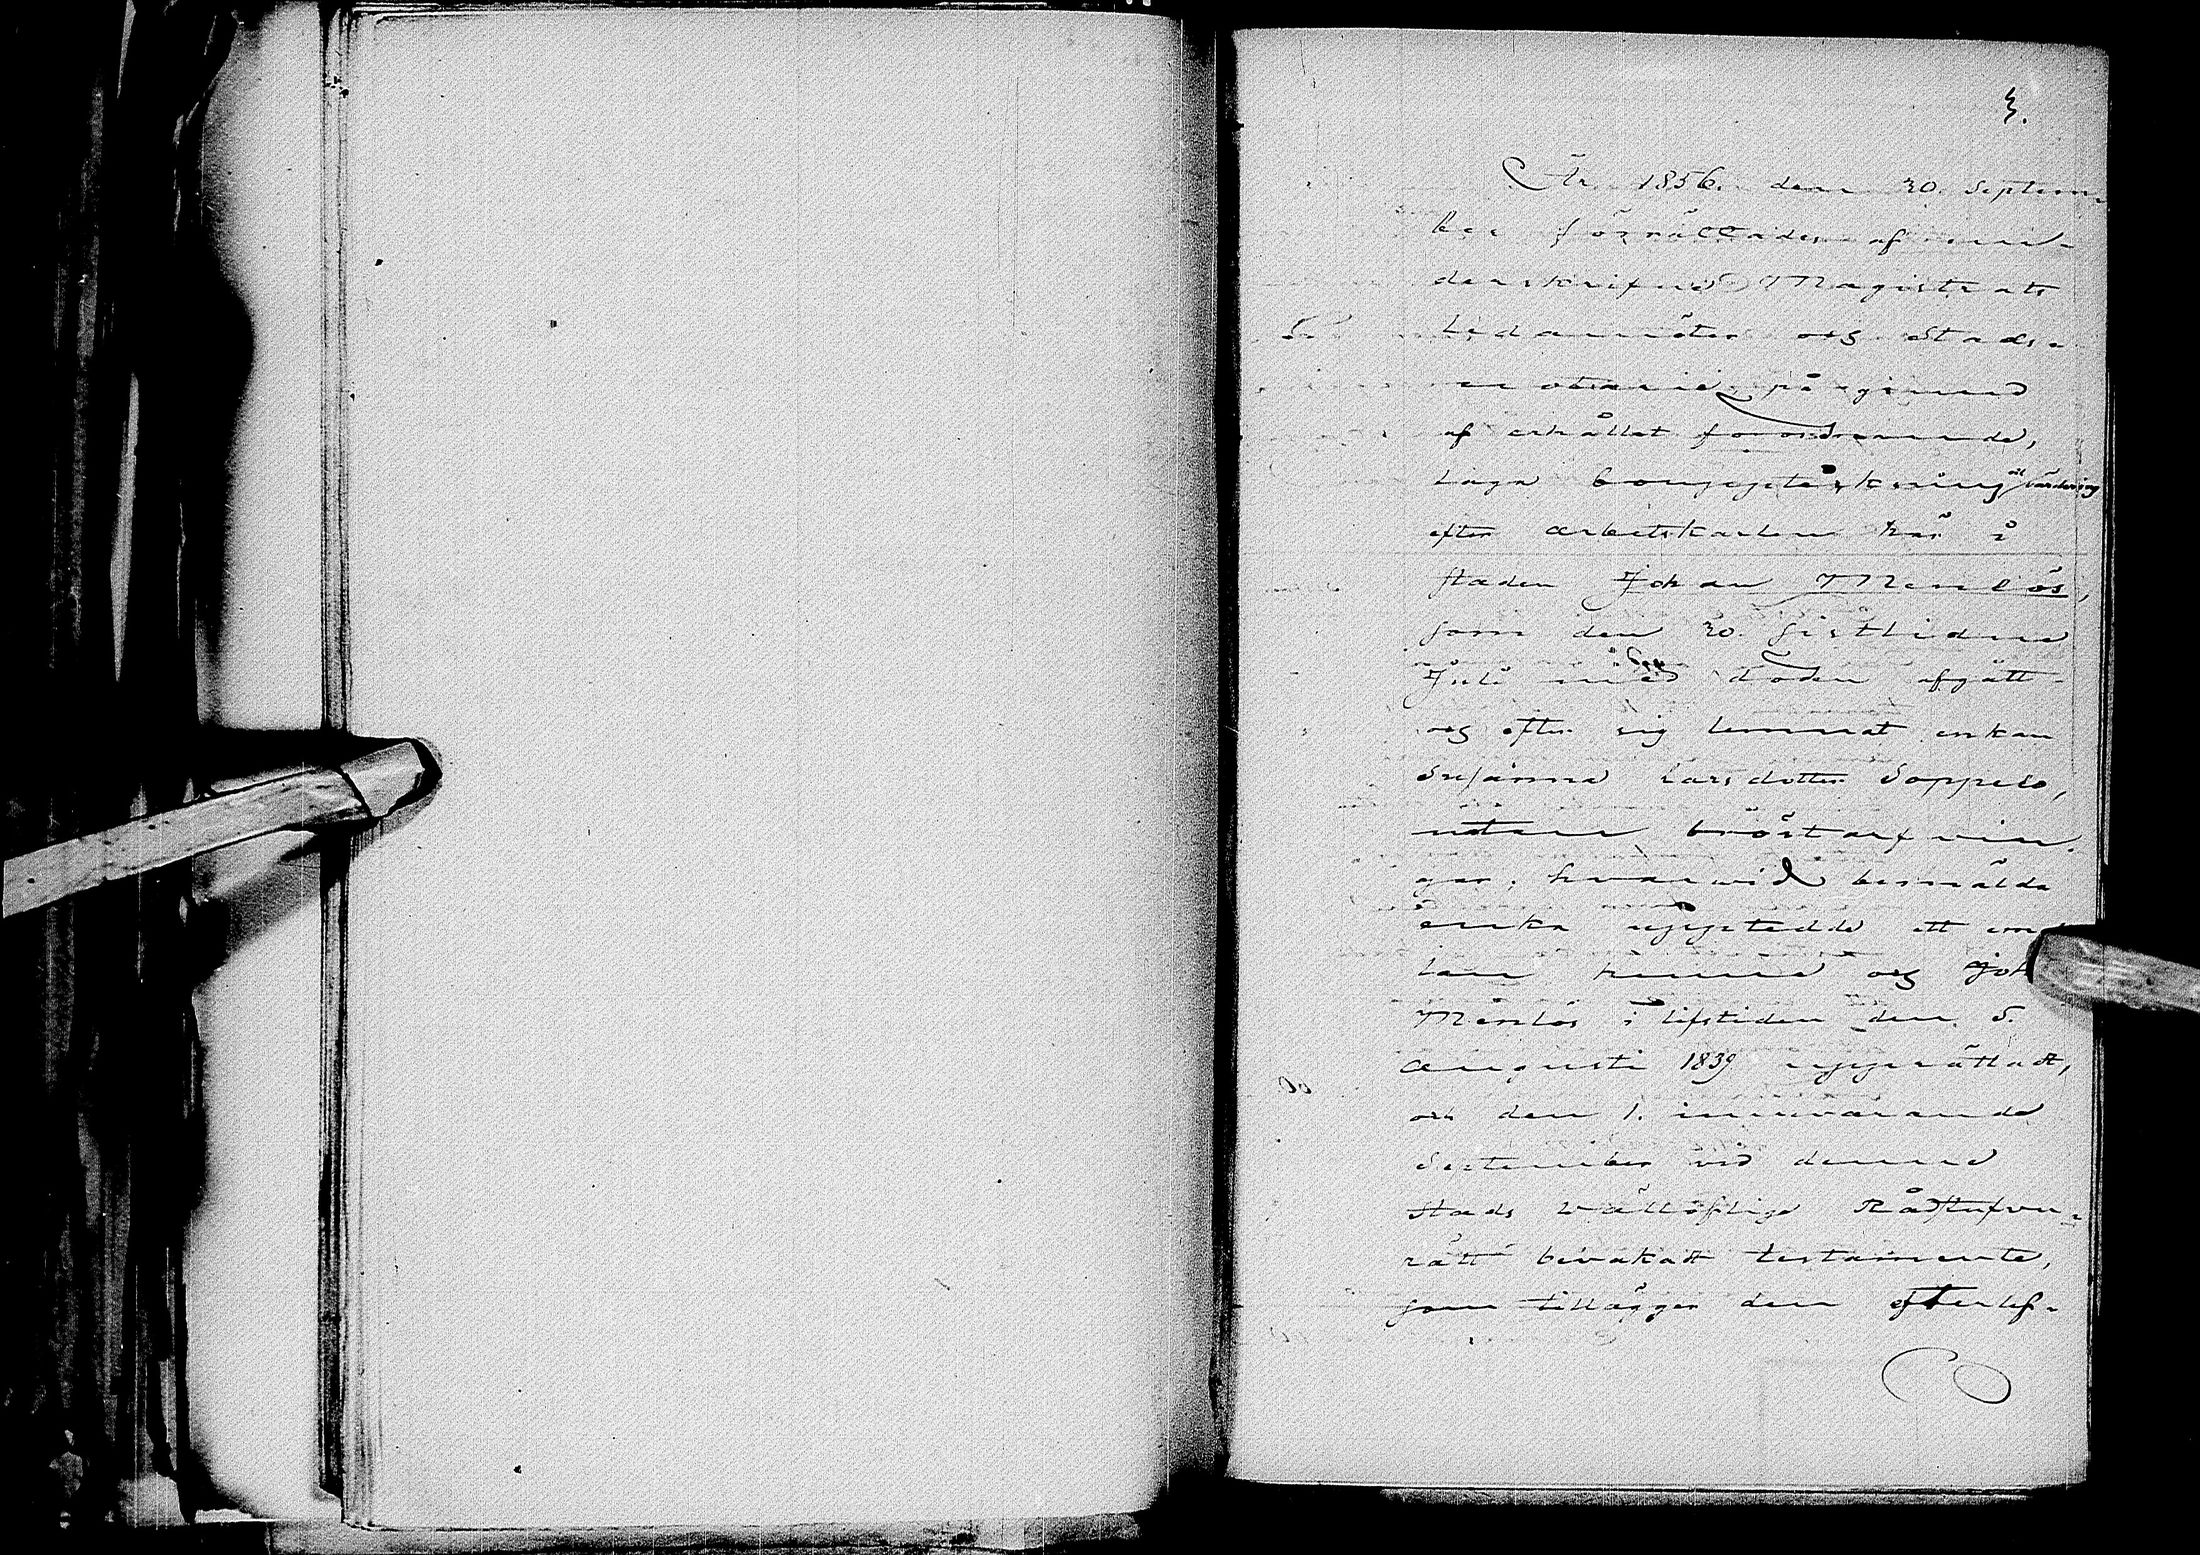 3.
År 1856. den 30. Septem-
ber förrättades af un-
derskrifne Magistrats
Ledamöter och Stads-
notarie, på grund
af erhållet förordnande,
laga bouppteckning och värdering
efter arbetskarlen här i
staden Johan Menlös,
som den 30. sistlidne
Juli med döden afgått
och efter sig lemnat enkan
Susanna Larsdotter Soppelo,
utan bröstarfvin-
gar; hvarvid bemälde
enka uppstedde ett em
lan henne och Joh
Menlös i lifstiden den 5.
Augusti 1839 upprättadt,
och den 1. innevarande
September vid denne
stads vällofliga Rådstufvu-
rätt bevakadt testamente,
som tillägger den efterlef-